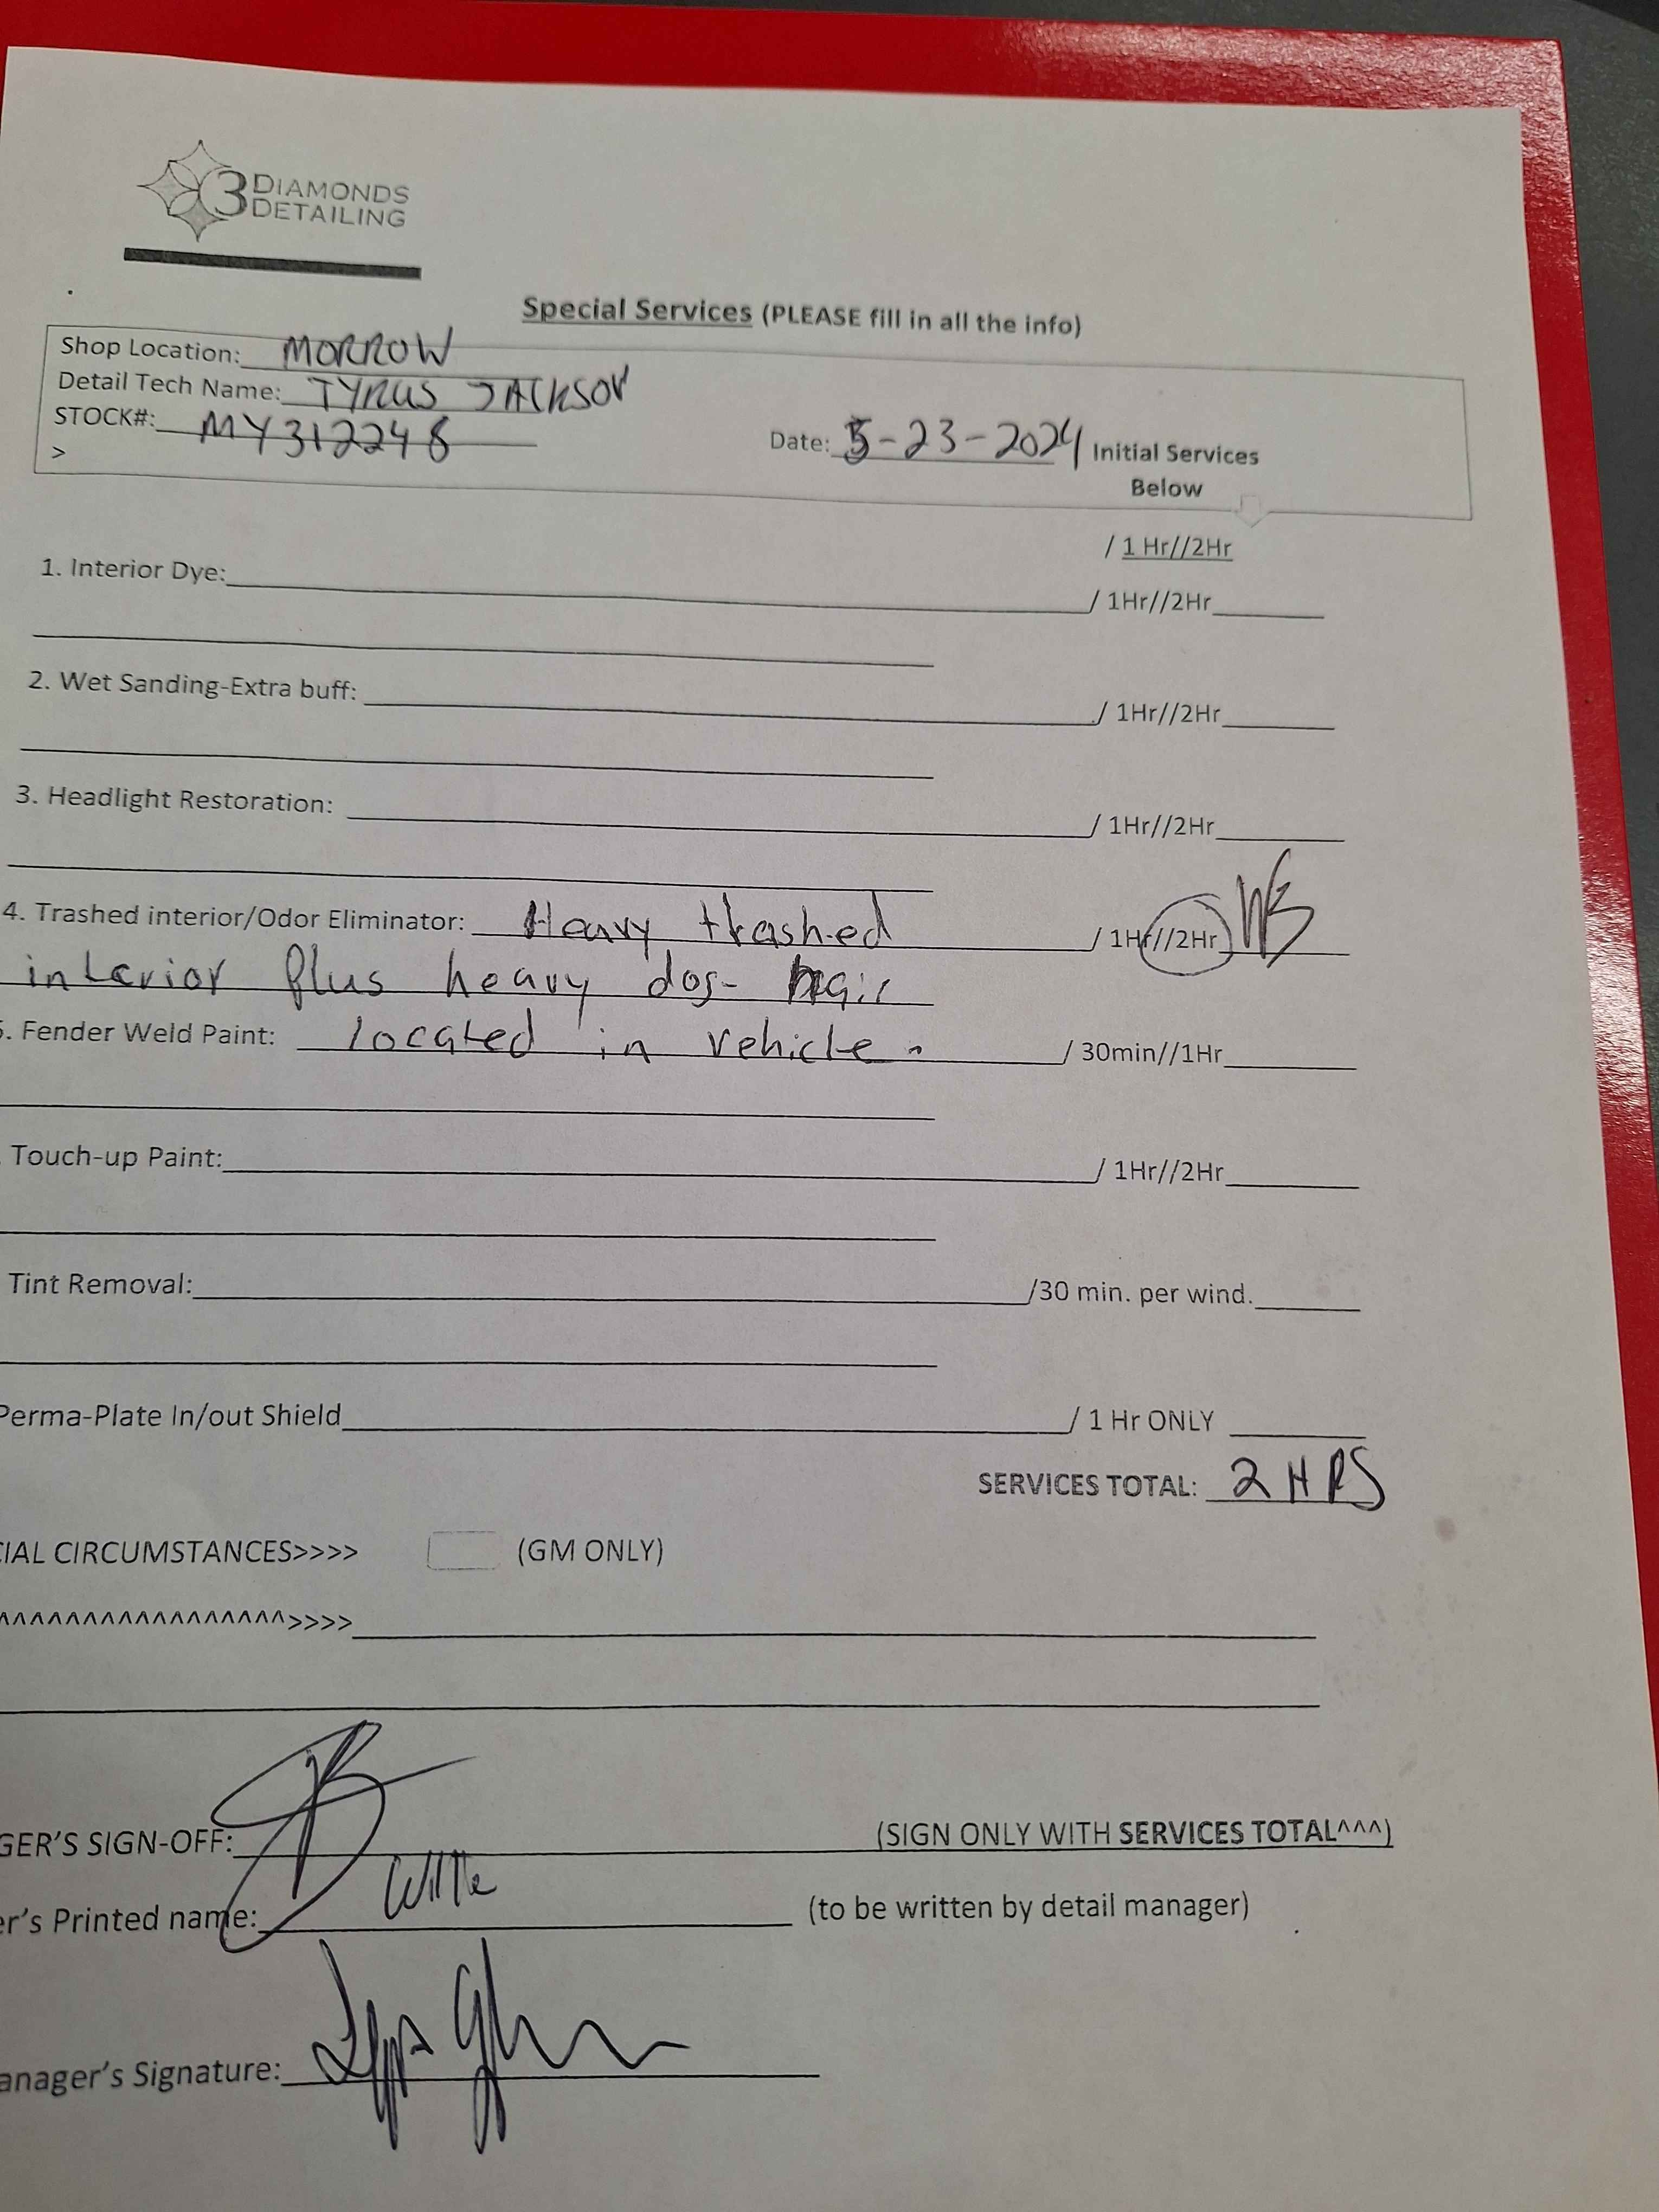 3 DIAMONDS
DETAILING
Special Services (PLEASE fill in all the info)
Shop Location: MORROW
Detail Tech Name: TYRUS JACKSON
STOCK#: MY312248
>
Date: 5-23-2024 Initial Services
Below
/ 1 Hr//2Hr
1. Interior Dye: / 1Hr//2Hr
2. Wet Sanding-Extra buff: / 1Hr//2Hr
3. Headlight Restoration: / 1Hr//2Hr
4. Trashed interior/Odor Eliminator: Heavy trashed / 1Hr//2Hr WB
interior plus heavy dog hair
5. Fender Weld Paint: located in vehicle. / 30min//1Hr
Touch-up Paint: / 1Hr//2Hr
Tint Removal: /30 min. per wind.
Perma-Plate In/out Shield / 1 Hr ONLY
SERVICES TOTAL: 2 HRS
CIAL CIRCUMSTANCES>>>> (GM ONLY)
^^^^^^^^^^^^^^^^^>>>>
GER'S SIGN-OFF: (SIGN ONLY WITH SERVICES TOTAL^^^)
er's Printed name: (to be written by detail manager)
anager's Signature: